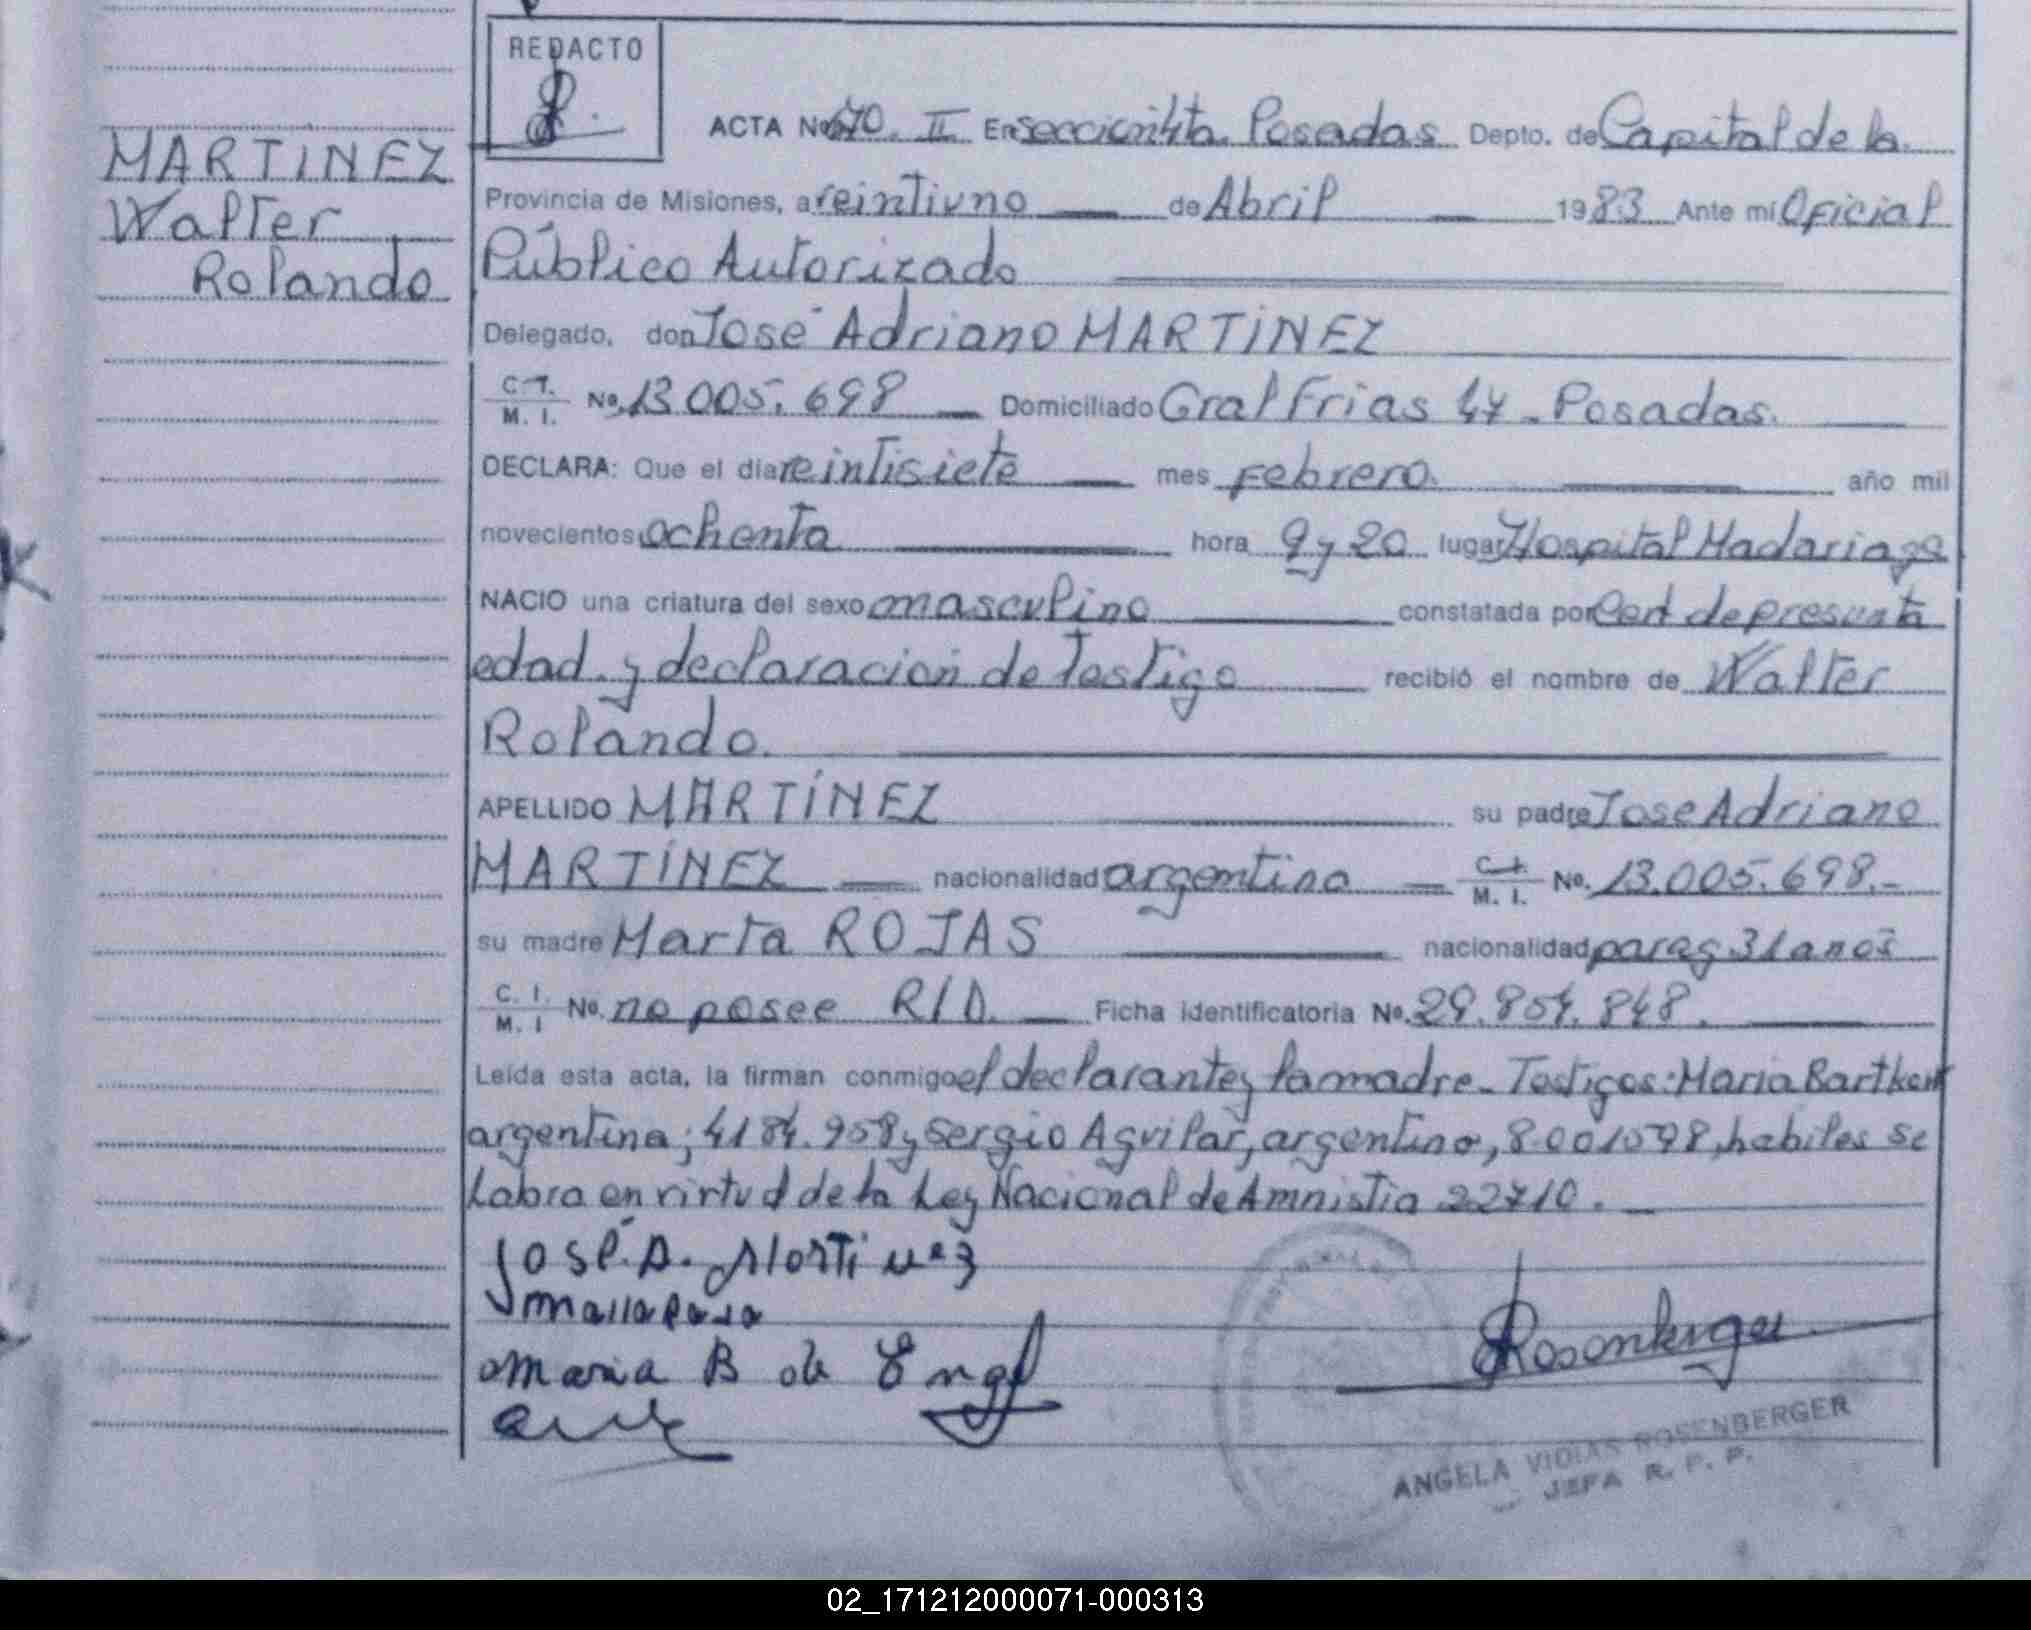 REDACTO
MARTINEZ
Walter
Rolando
ACTA No 670. II En Sección 4ta. Posadas Depto. de Capital de la
Provincia de Misiones, a veintiuno de Abril 1983 Ante mí Oficial
Público Autorizado
Delegado, don José Adriano MARTÍNEZ
C. I. M. I. No. 13.005.698 Domiciliado Gral Frias 47 - Posadas.
DECLARA: Que el dia veintisiete mes Febrero. año mil
novecientos ochenta hora 9 y 20 lugar Hospital Madariaga
NACIO una criatura del sexo masculino constatada por Cert de presunta
edad y declaración de Testigo recibió el nombre de Walter
Rolando.
APELLIDO MARTÍNEZ su padre Jose Adriano
MARTÍNEZ nacionalidad argentino C. I. M. I. No. 13.005.698.-
su madre Marta ROJAS nacionalidad parag 31 anos
C. I. M. I No. no posee R/D. Ficha identificatoria No. 29.854.848.
Leída esta acta, la firman conmigo el declarante y la madre - Testigos: Maria
argentina; 4184.958 y Sergio Aguilar, argentino, 8.001598, habiles se
labra en virtud de la Ley Nacional de Amnistia 22710. -
José. A. Martinez
Maria B de Engl
Rosenberger
ANGELA VIDIAS ROSENBERGER
JEFA R. P. P.
02_171212000071-000313